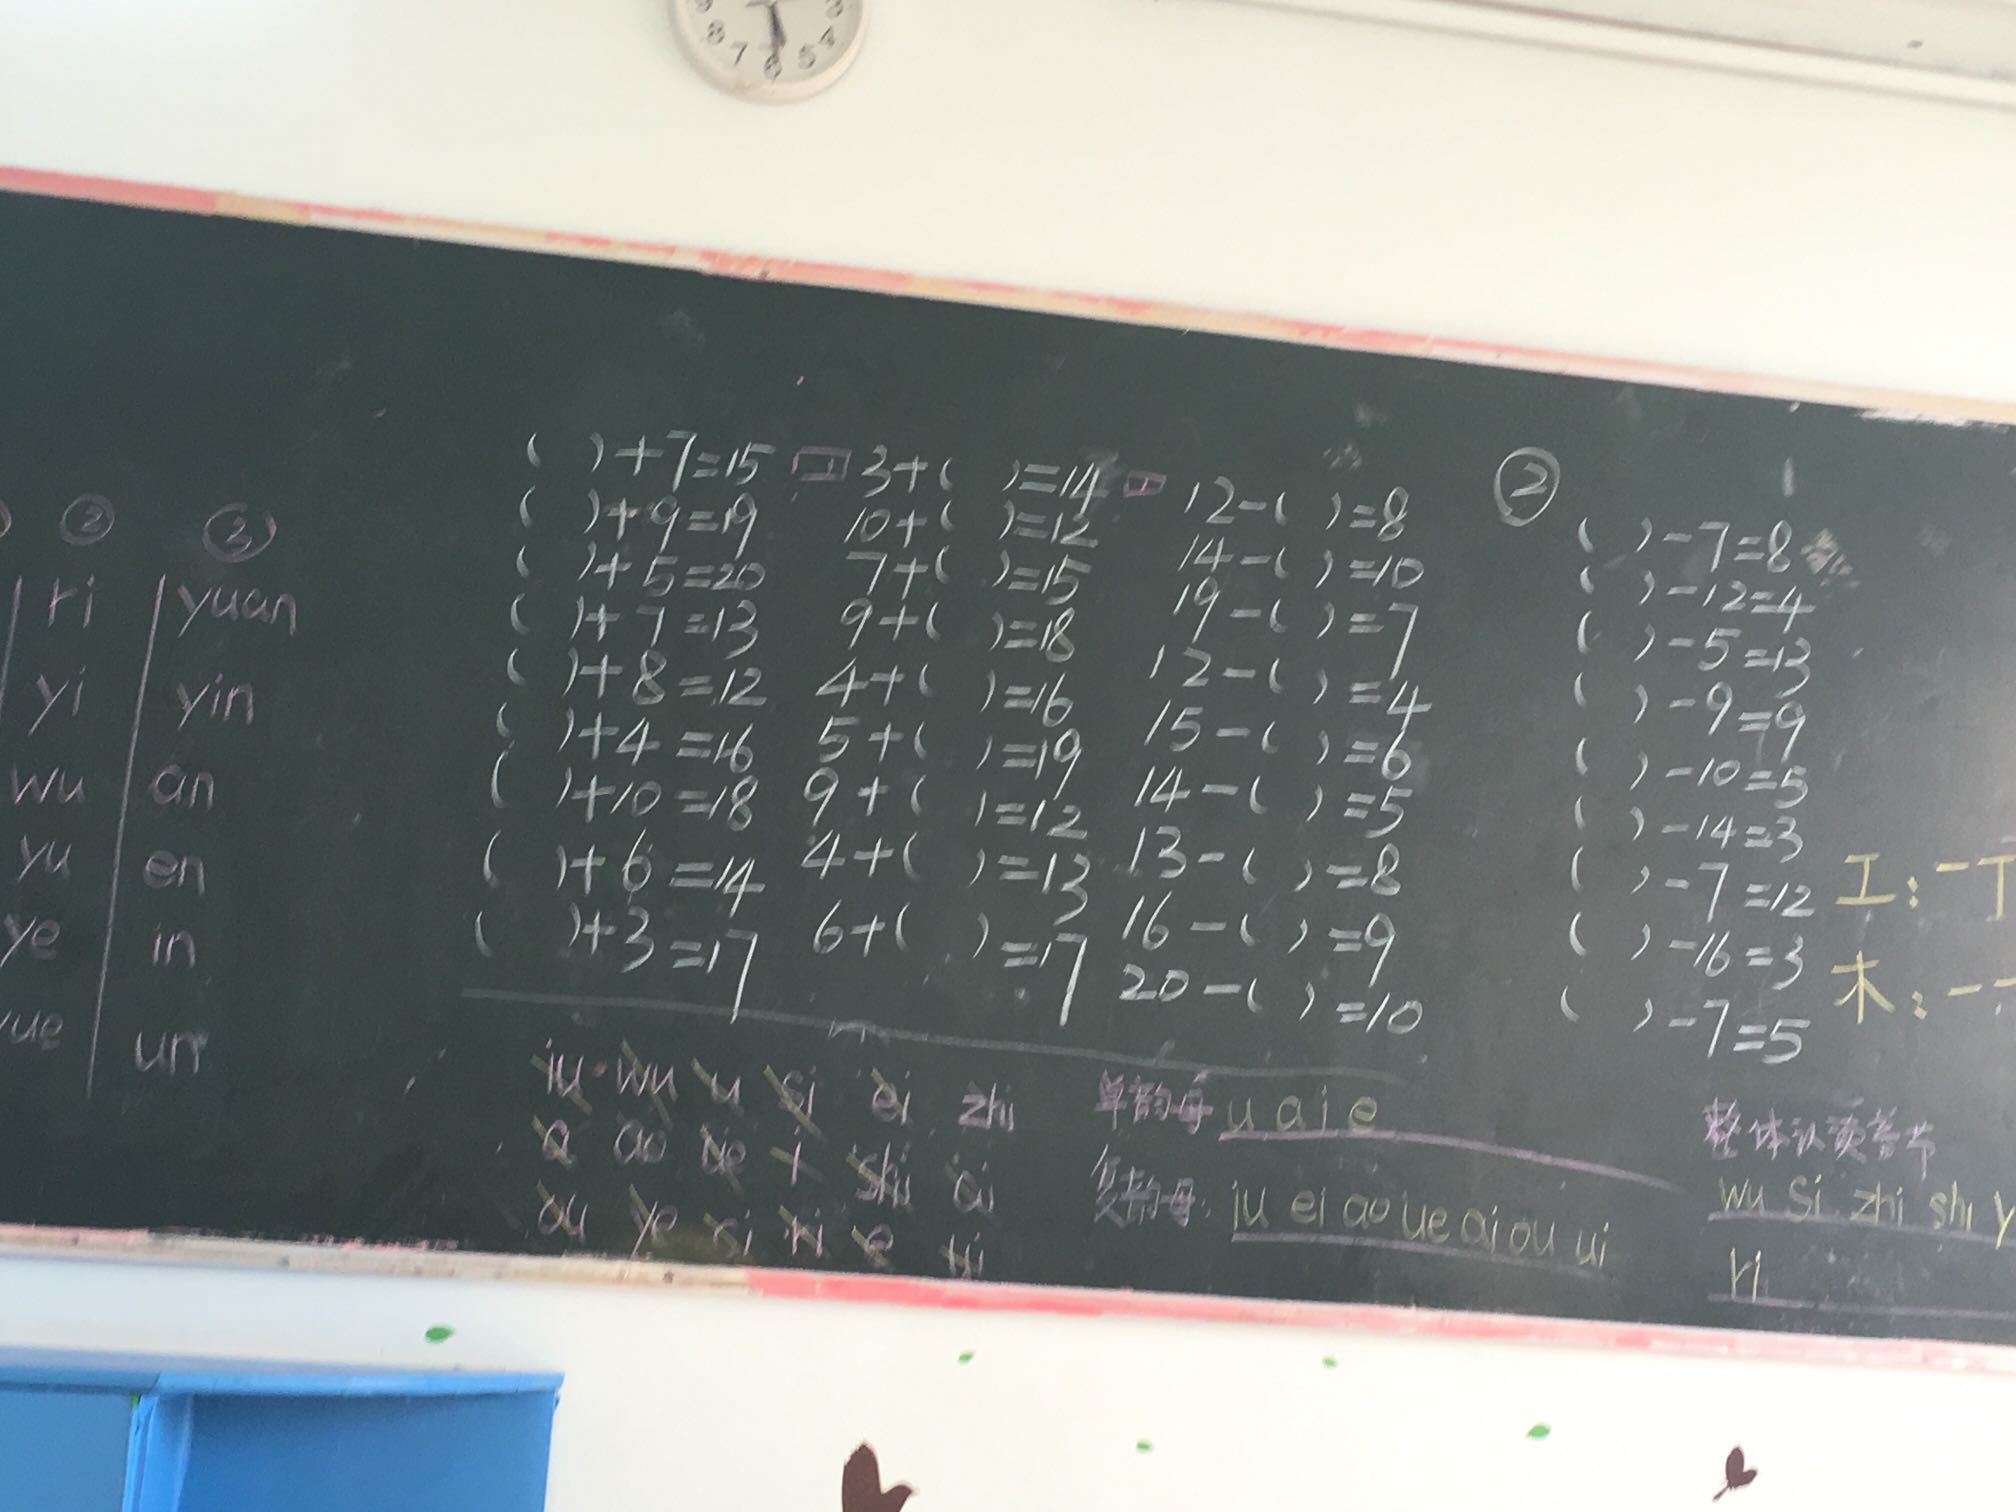 8 7 6 5 4
( )+7=15 3+( )=14 12-( )=8 ② ( )-7=8
( )+9=19 10+( )=12 14-( )=10 ( )-12=4
( )+5=20 7+( )=15 19-( )=7 ( )-5=13
( )+7=13 9+( )=18 12-( )=4 ( )-9=9
( )+8=12 4+( )=16 15-( )=6 ( )-10=5
( )+4=16 5+( )=19 14-( )=5 ( )-14=3
( )+10=18 9+( )=12 13-( )=8 ( )-7=12
( )+6=14 4+( )=13 16-( )=9 ( )-16=3
( )+3=17 6+( )=17 20-( )=10 ( )-7=5
② ③
ri yuan
yi yin
wu an
yu en
ye in
yue un
工:一丅
木:一
iu wu u si ei zhi
a ao üe i shi ai
ou ye ri e ui
单韵母 u a i e
复韵母: iu ei ao ue ai ou ui
整体认读音节
wu si zhi shi y
ri